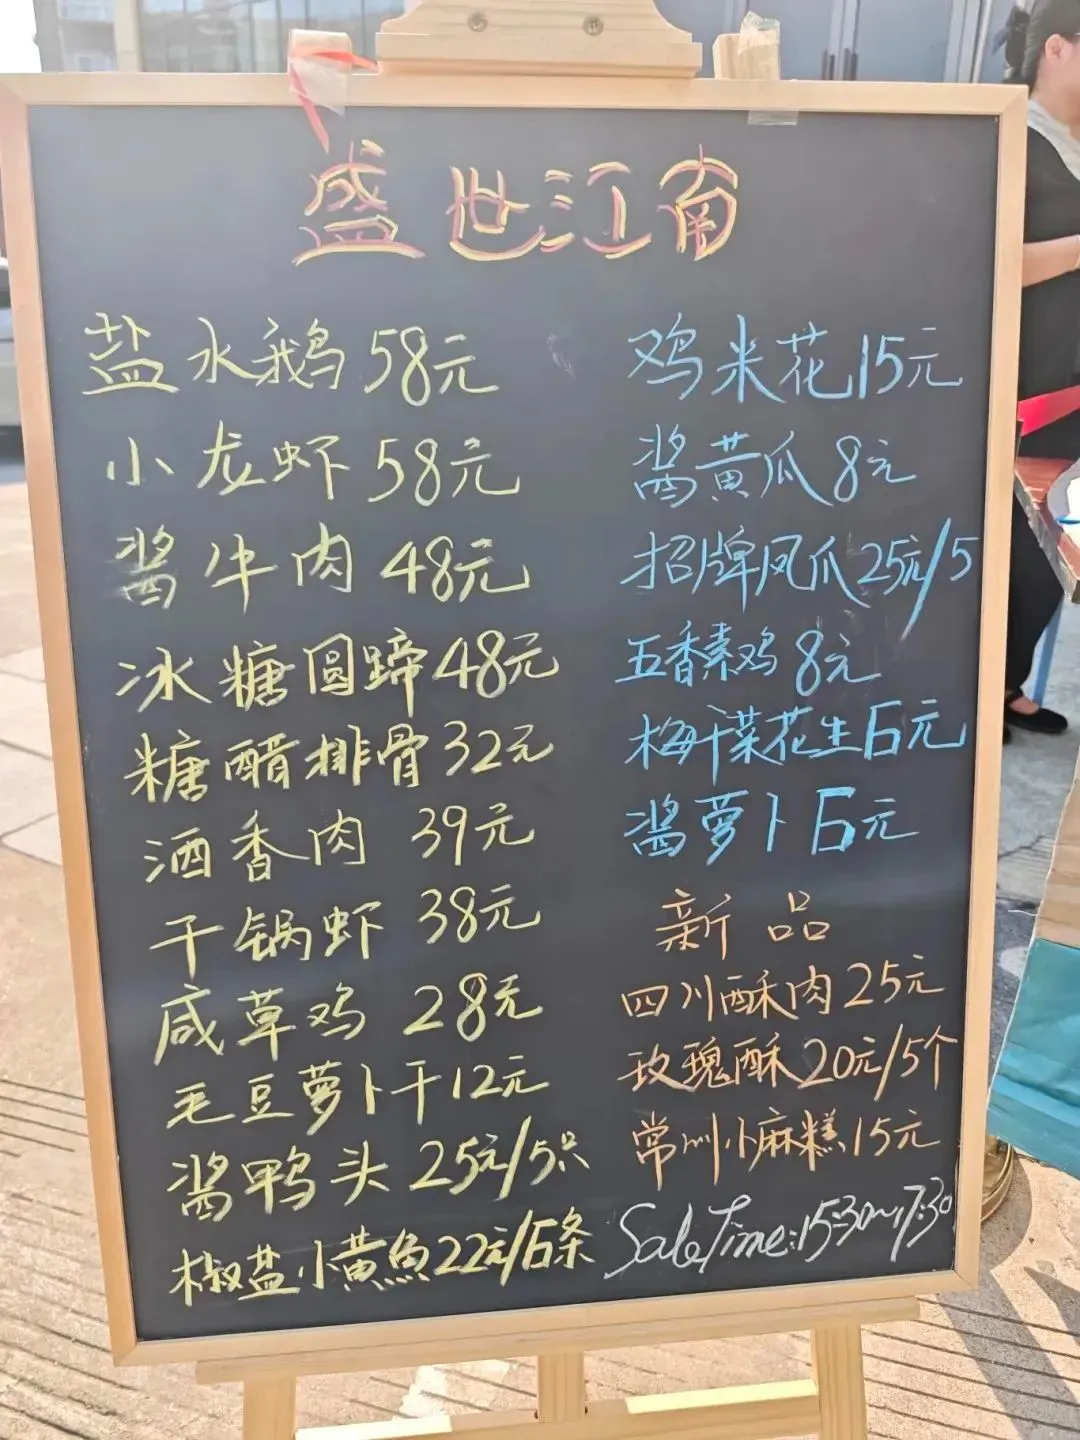 盛世江南
盐水鹅58元
小龙虾58元
酱牛肉48元
冰糖圆蹄48元
糖醋排骨32元
酒香肉 39元
干锅虾 38元
咸草鸡 28元
毛豆萝卜干12元
酱鸭头 25元/5只
椒盐小黄魚22元/6条
鸡米花15元
酱黄瓜8元
招牌凤爪25元/5
五香素鸡8元
梅干菜花生6元
酱萝卜6元
新品
四川酥肉25元
玫瑰酥20元/5个
常州小麻糕15元
Sale Time:15:30~17:30